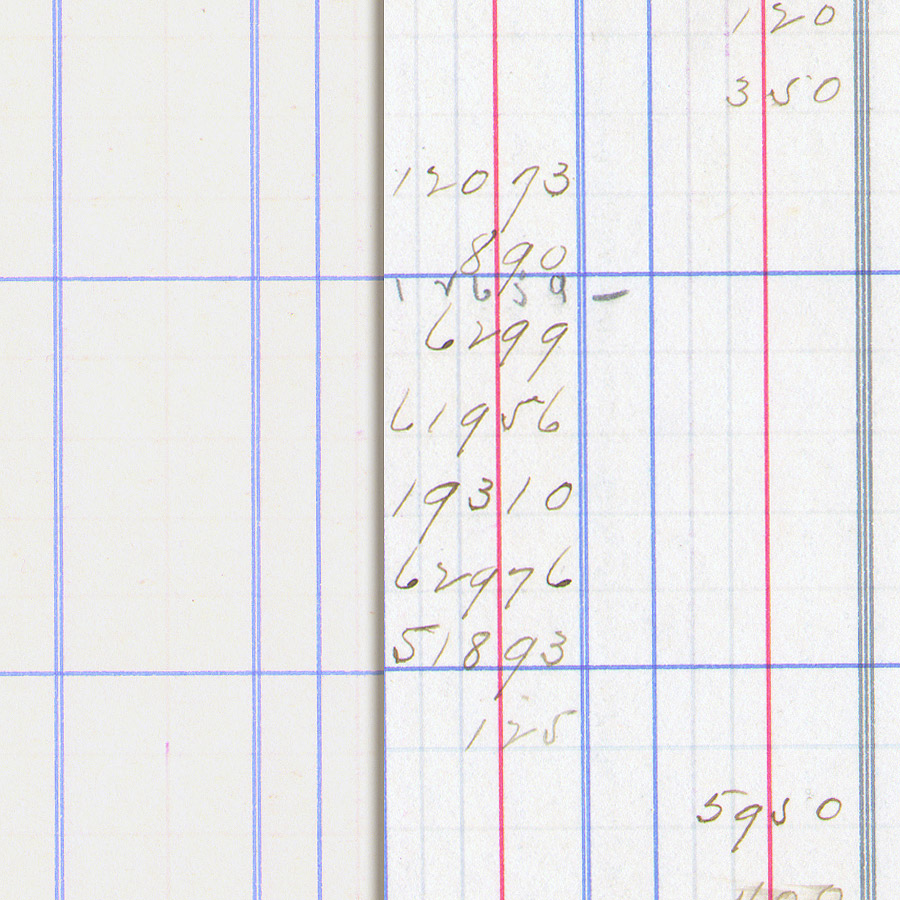 120
350
12073
890
12659 –
6299
61956
19310
62976
51893
125
5950